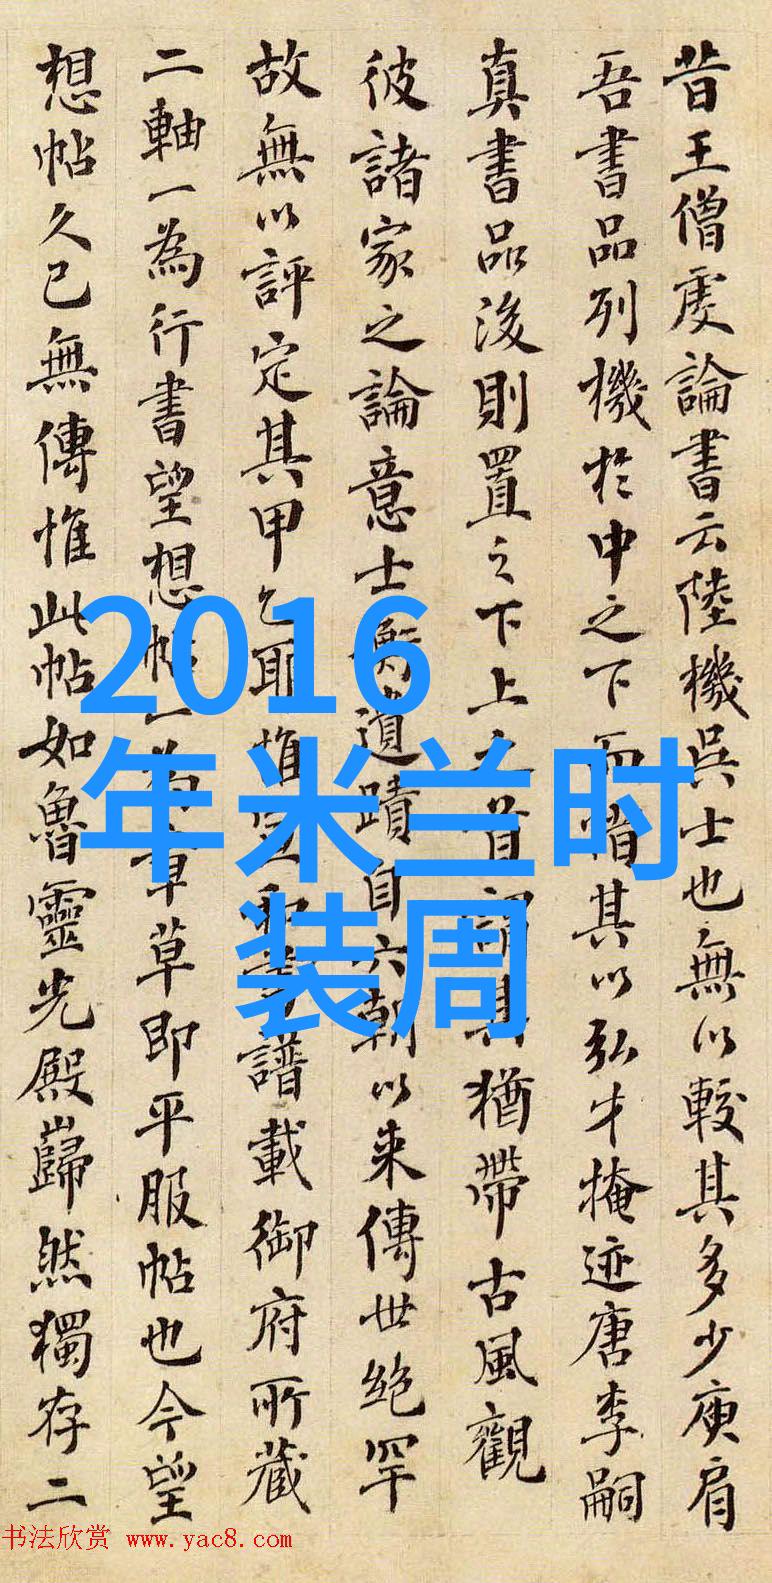 昔王僧虔論書云陸機吳士也無以較其多少庾肩
吾書品列機於中之下而惜其以弘才掩迹唐李嗣
真書品後則置之下上之首謂其猶帶古風觀
彼諸家之論意士衡遺蹟自六朝以来傳世絶罕
故無以評定其甲乙耶惟宣和書譜載御府所蔵
二軸一為行書望想帖一為章草即平服帖也今望
想帖久已無傳惟此帖如魯靈光殿巋然獨存二
2016
年米兰时
装周
书法欣赏 www.yac8.com